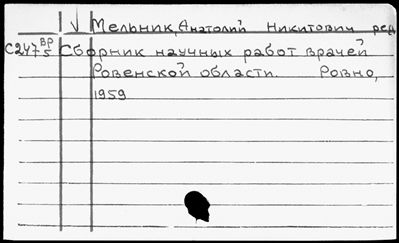 Мельник, Анатолий Никитович ред
С247 ВР 5 Сборник научных работ врачей
Ровенской области. Ровно,
1959